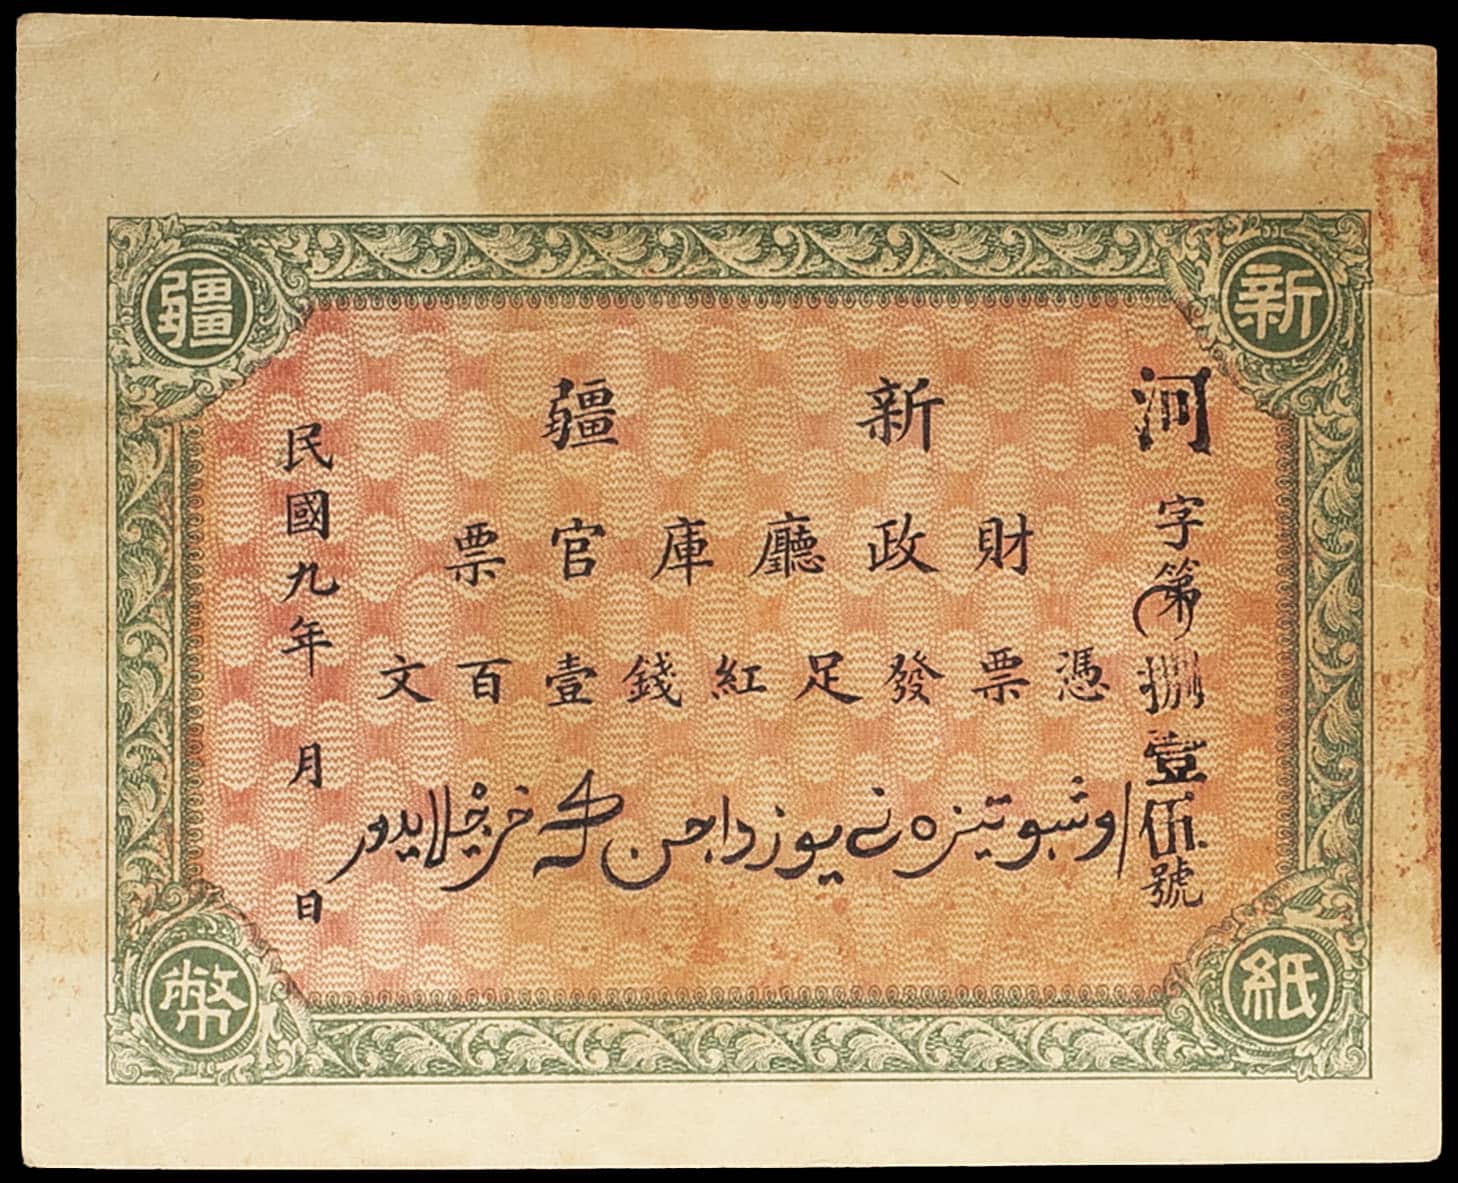 新疆
紙幣
河字第捌壹伍號
新疆
財政廳庫官票
憑票發足紅錢壹百文
اوشبو تيزه نى يوز داجن كه خرجلايدور
民國九年 月 日